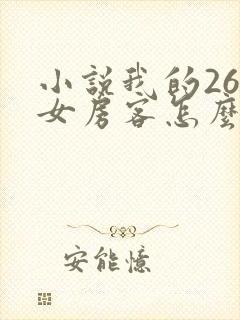 小説我的26
女房客怎麼
安能憶